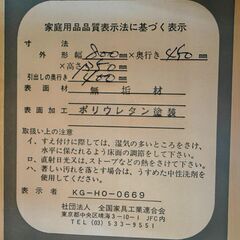 家庭用品品質表示法に基づく表示
寸法
外形 幅800mm×奥行き450mm
×高さ1250mm
引出しの奥行き400mm
表面材 無垢材
表面加工 ポリウレタン塗装
取扱い上の注意
イ. すえ付けに際しては、湿気の多いところをさけ、
水平になるように床面の調節をして下さい。
ロ. 直射日光又は、ストーブなどの熱をさけて下さい。
ハ. 著しい汚れを落とす場合は、うすめた中性洗剤を
使用して下さい。
表示者 KG-HO-0669
社団法人 全国家具工業連合会
東京都中央区晴海3-10-1 JFC内
TEL(03)533-9551